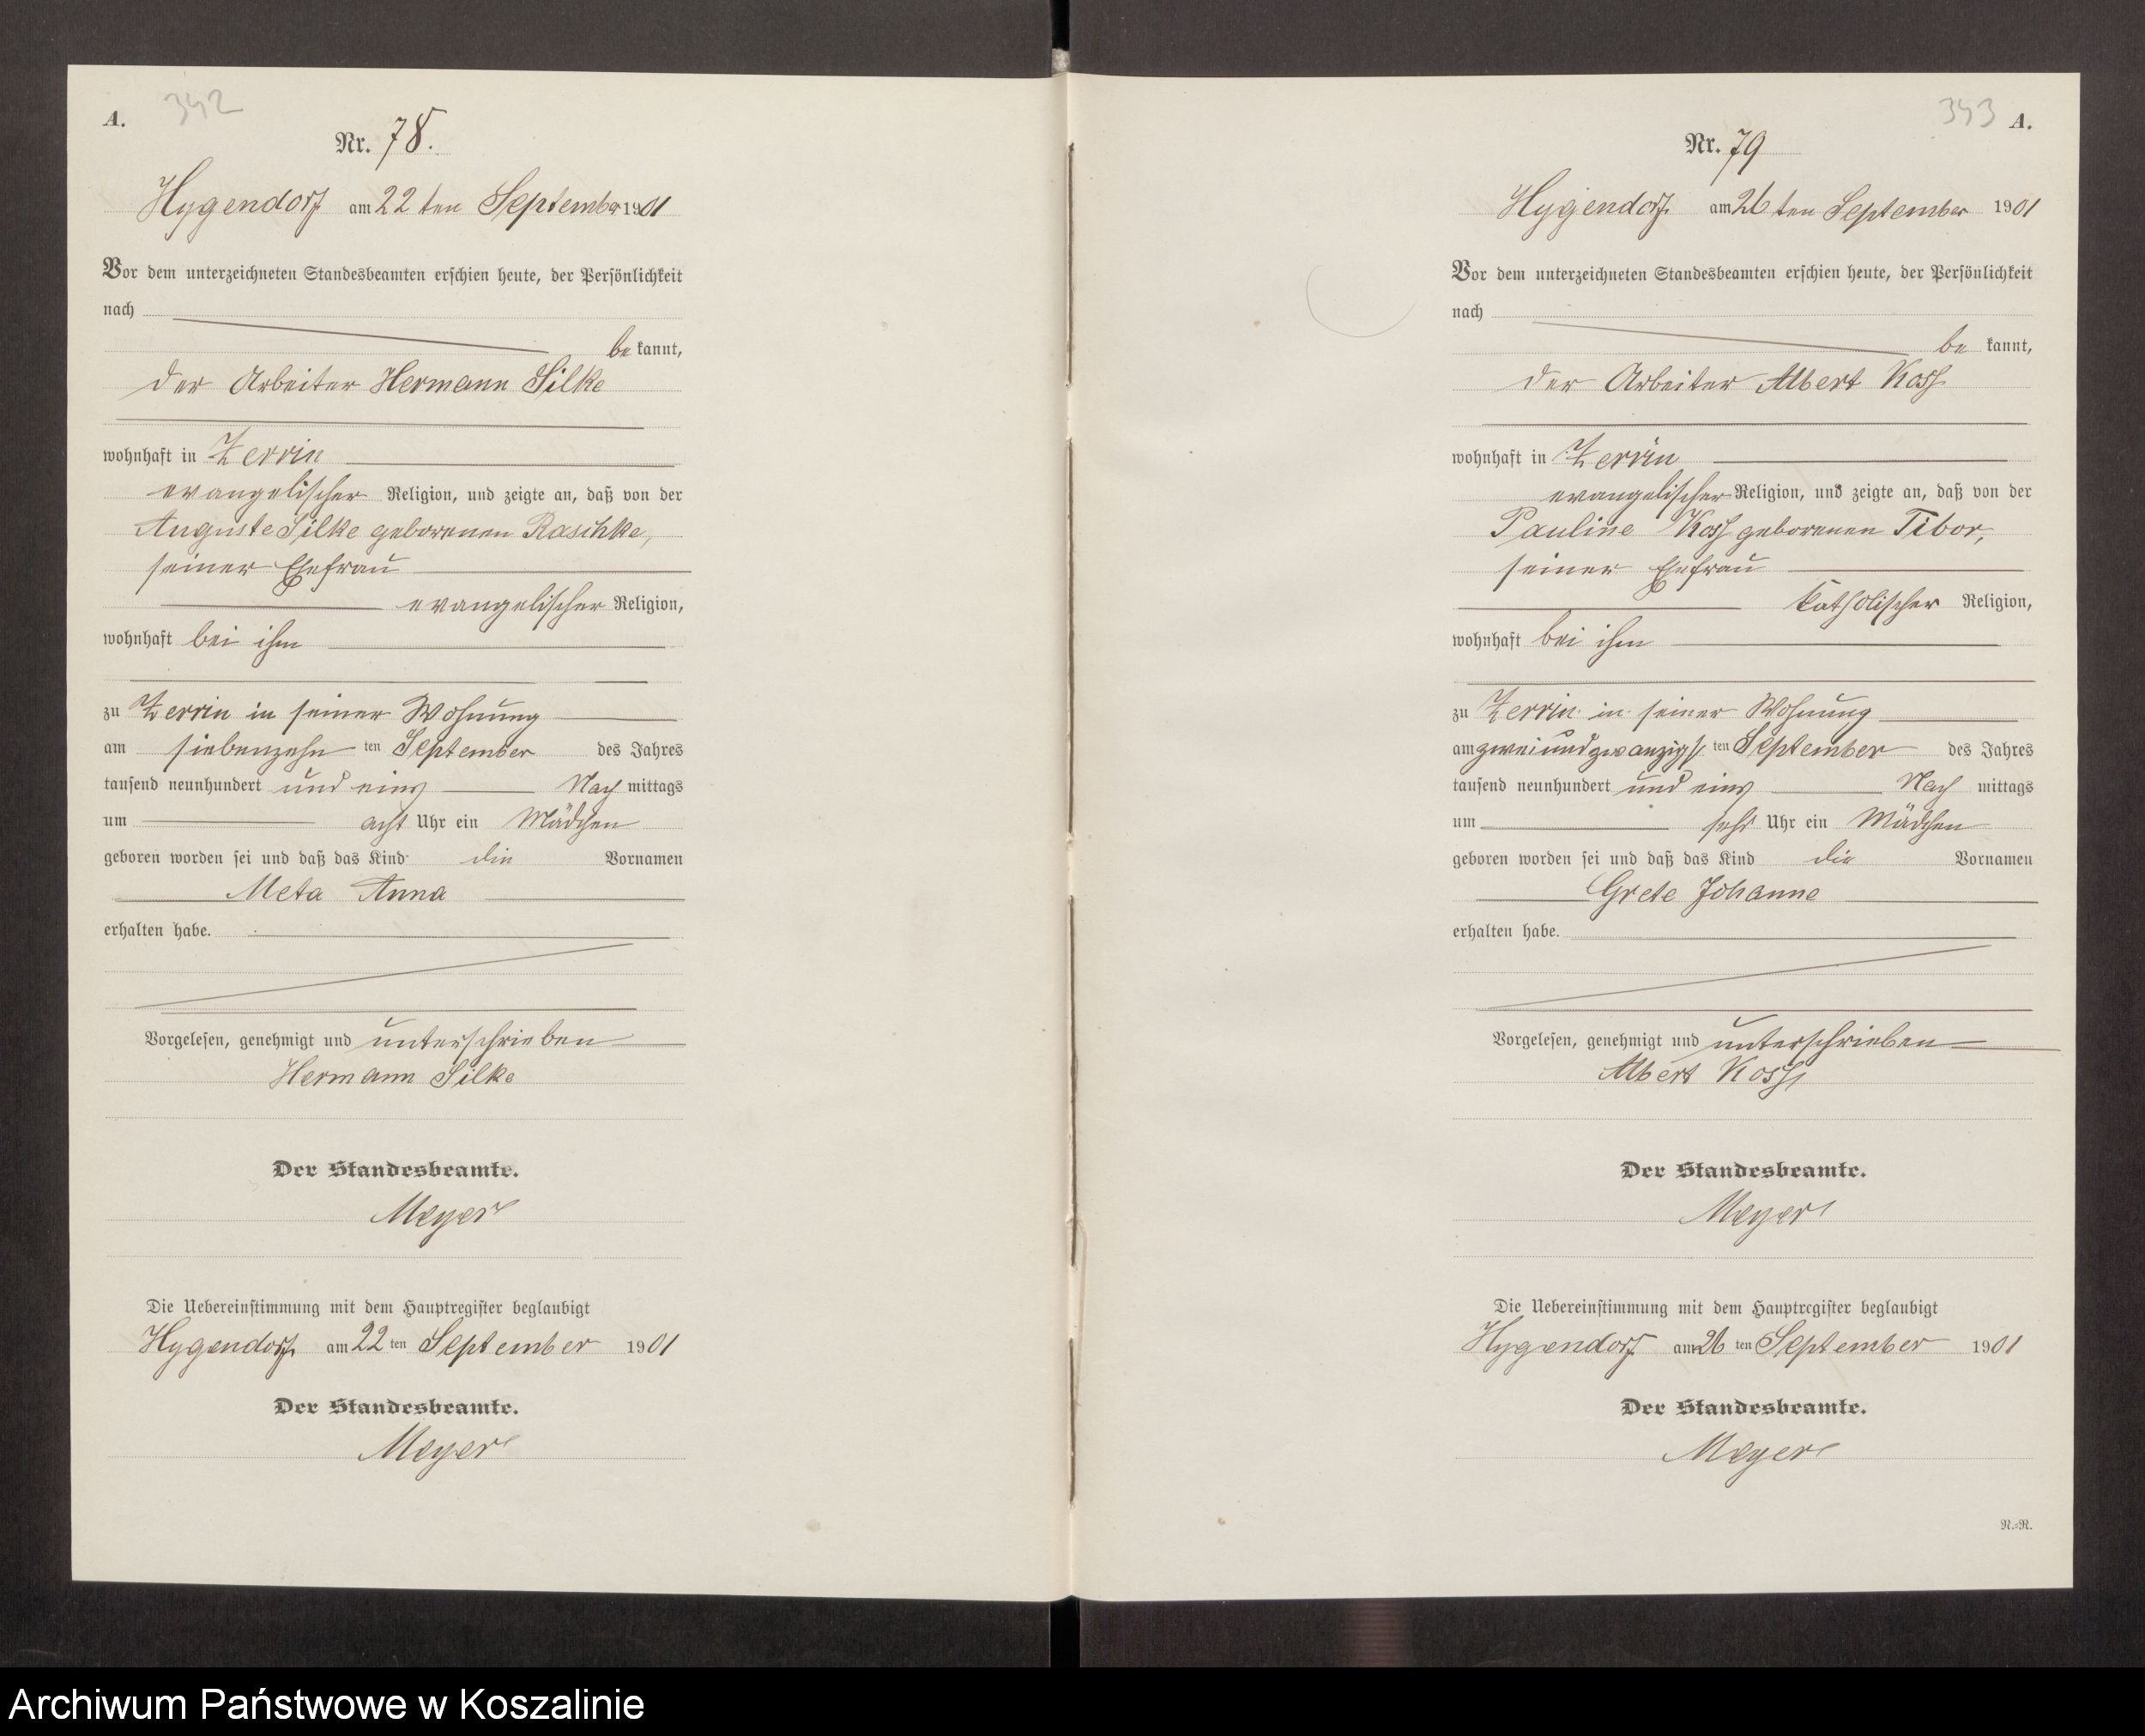 A. 342
Nr. 78.
Hygendorf am 22 ten September 1901
Vor dem unterzeichneten Standesbeamten erschien heute, der Persönlichkeit
nach
be kannt,
der Arbeiter Hermann Silke
wohnhaft in Zerrin
evangelischer Religion, und zeigte an, daß von der
Auguste Silke geborenen Raschke,
seiner Ehefrau
evangelischer Religion,
wohnhaft bei ihm
zu Zerrin in seiner Wohnung
am siebenzehn ten September des Jahres
tausend neunhundert und eins Nach mittags
um acht Uhr ein Mädchen
geboren worden sei und daß das Kind die Vornamen
Meta Anna
erhalten habe.
Vorgelesen, genehmigt und unterschrieben
Hermann Silke
Der Standesbeamte.
Meyer
Die Uebereinstimmung mit dem Hauptregister beglaubigt
Hygendorf am 22 ten September 1901
Der Standesbeamte.
Meyer
343 A.
Nr. 79
Hygendorf am 26 ten September 1901
Vor dem unterzeichneten Standesbeamten erschien heute, der Persönlichkeit
nach
be kannt,
der Arbeiter Albert Koss
wohnhaft in Zerrin
evangelischer Religion, und zeigte an, daß von der
Pauline Koss geborenen Tibor,
seiner Ehefrau
katholischer Religion,
wohnhaft bei ihm
zu Zerrin in seiner Wohnung
am zweiundzwanzigs ten September des Jahres
tausend neunhundert und eins Nach mittags
um Uhr ein Mädchen
geboren worden sei und daß das Kind die Vornamen
Grete Johanne
erhalten habe.
Vorgelesen, genehmigt und unterschrieben
Albert Koss
Der Standesbeamte.
Meyer
Die Uebereinstimmung mit dem Hauptregister beglaubigt
Hygendorf am 26 ten September 1901
Der Standesbeamte.
Meyer
R.-R.
Archiwum Państwowe w Koszalinie